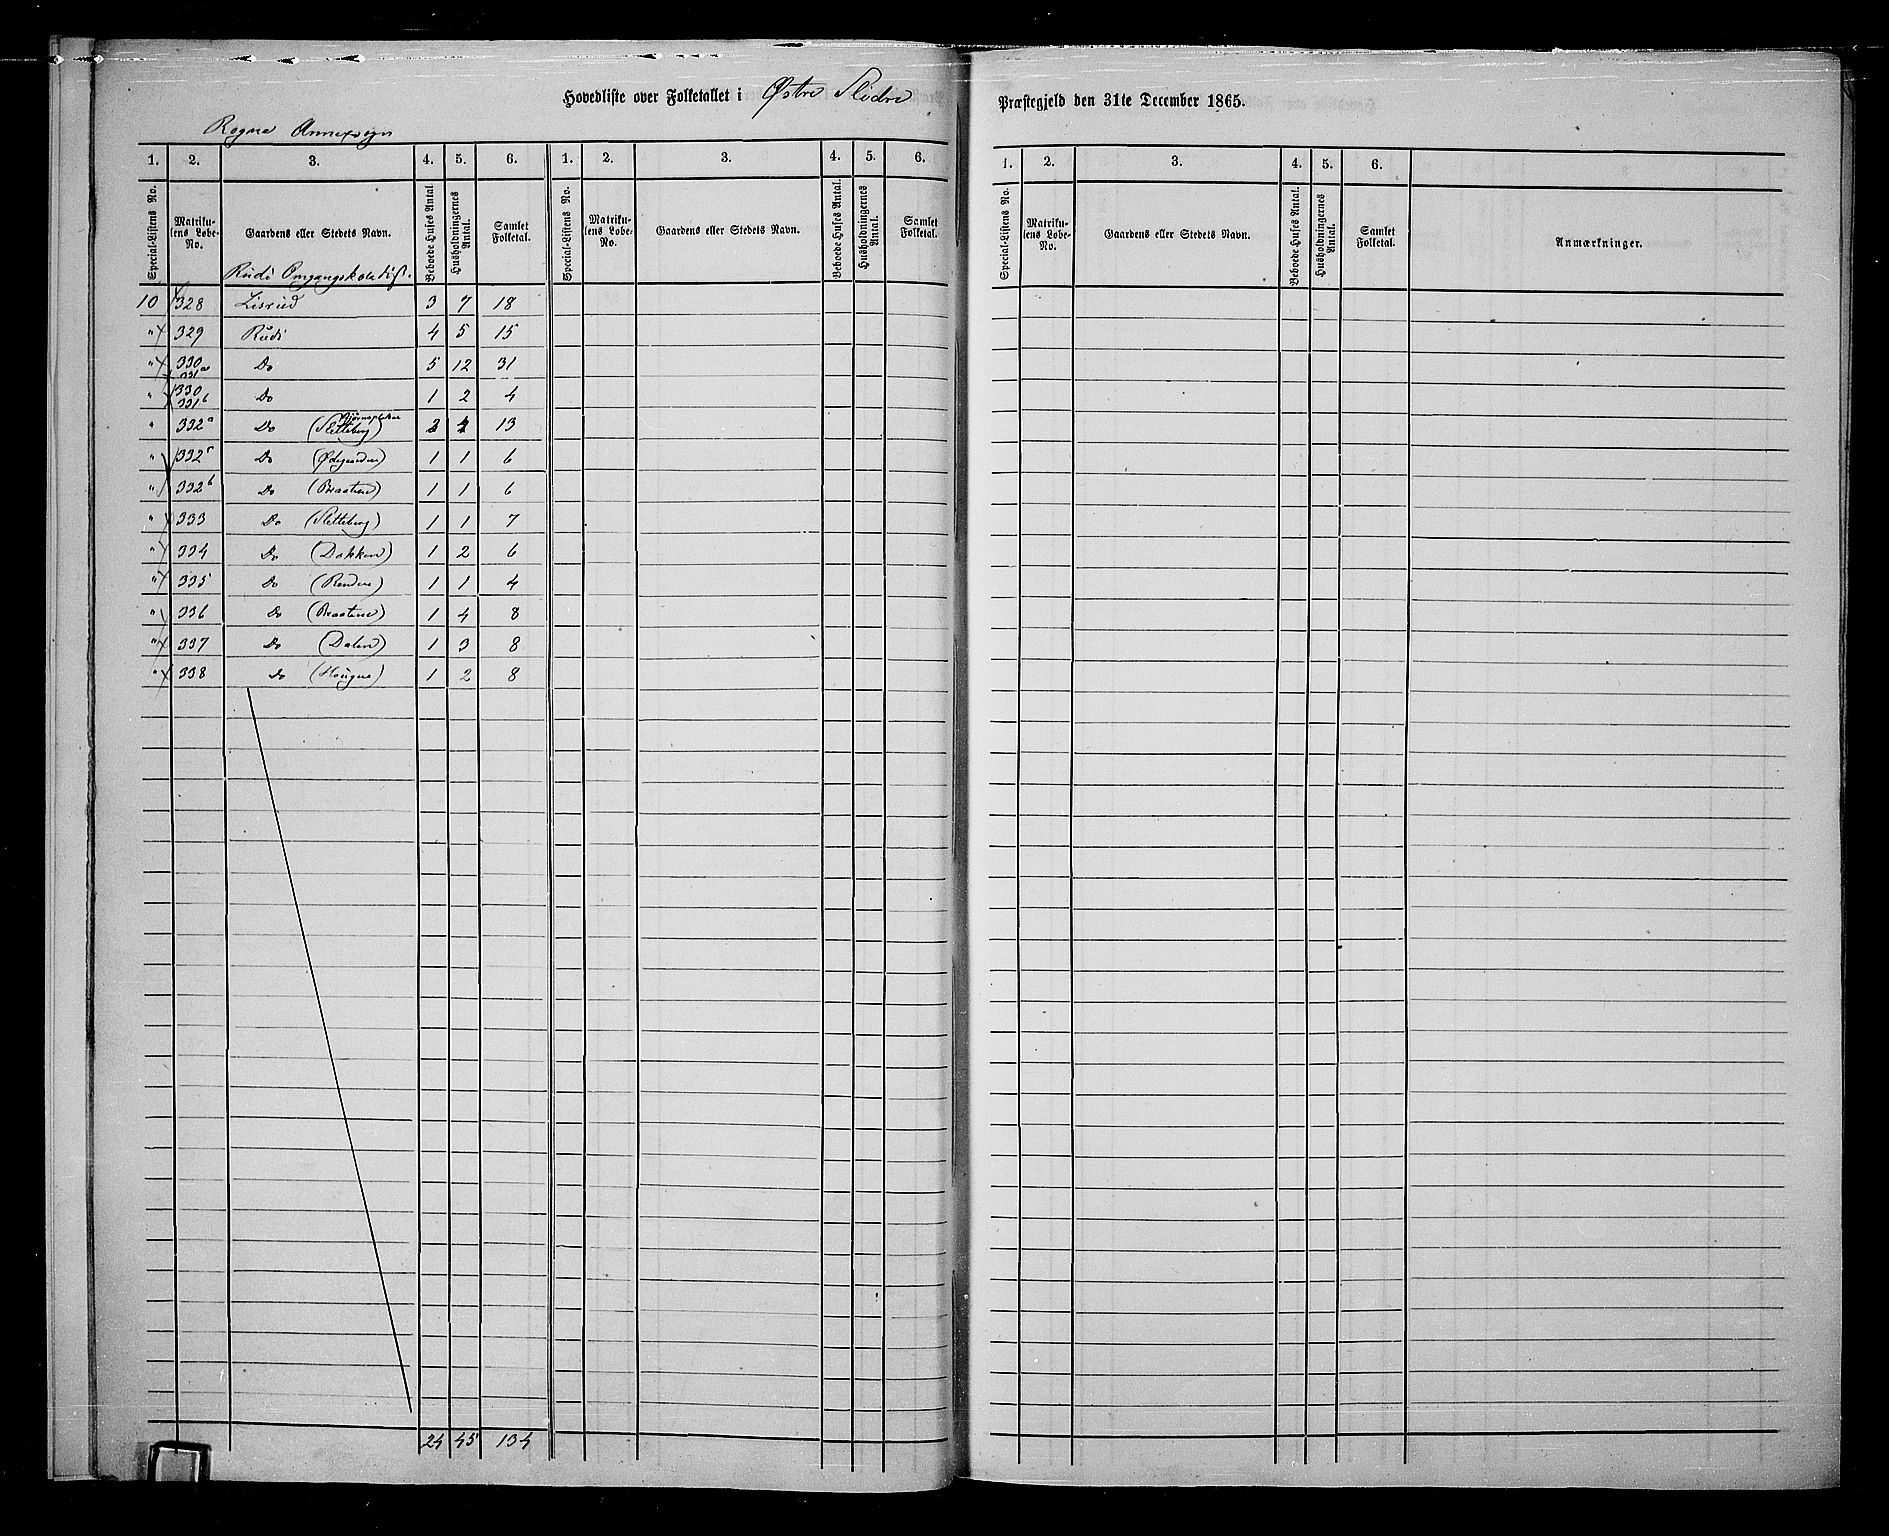 Hovedliste over Folketallet i Østre Slidre Præstegjeld den 31te December 1865.
Rogne Annexsogn
1. 2. 3. 4. 5. 6. 1. 2. 3. 4. 5. 6. 1. 2. 3. 4. 5. 6.
Special-Listens No. Matrikulens Løbe-No. Gaardens eller Stedets Navn. Beboede Huses Antal. Husholdningernes Antal. Samlet Folketal. Special-Listens No. Matrikulens Løbe-No. Gaardens eller Stedets Navn. Beboede Huses Antal. Husholdningernes Antal. Samlet Folketal. Special-Listens No. Matrikulens Løbe-No. Gaardens eller Stedets Navn. Beboede Huses Antal. Husholdningernes Antal. Samlet Folketal. Anmærkninger.
Rudi Omgangsskoledist.
10 328 Lisrud 3 7 18
" 329 Rudi 4 5 15
" 330 331a Do 5 12 31
" 330 331b Do 1 2 4
" 332a Do (Sletteberg) 3 4 13
" 332c Do (Ødegaarden) 1 1 6
" 332b Do (Braaten) 1 1 6
" 333 Do (Sletteberg) 1 1 7
" 334 Do (Dokken) 1 2 6
" 335 Do (Renden) 1 1 4
" 336 Do (Braaten) 1 4 8
" 337 Do (Dalen) 1 3 8
" 338 Do (Hougen) 1 2 8
24 45 134